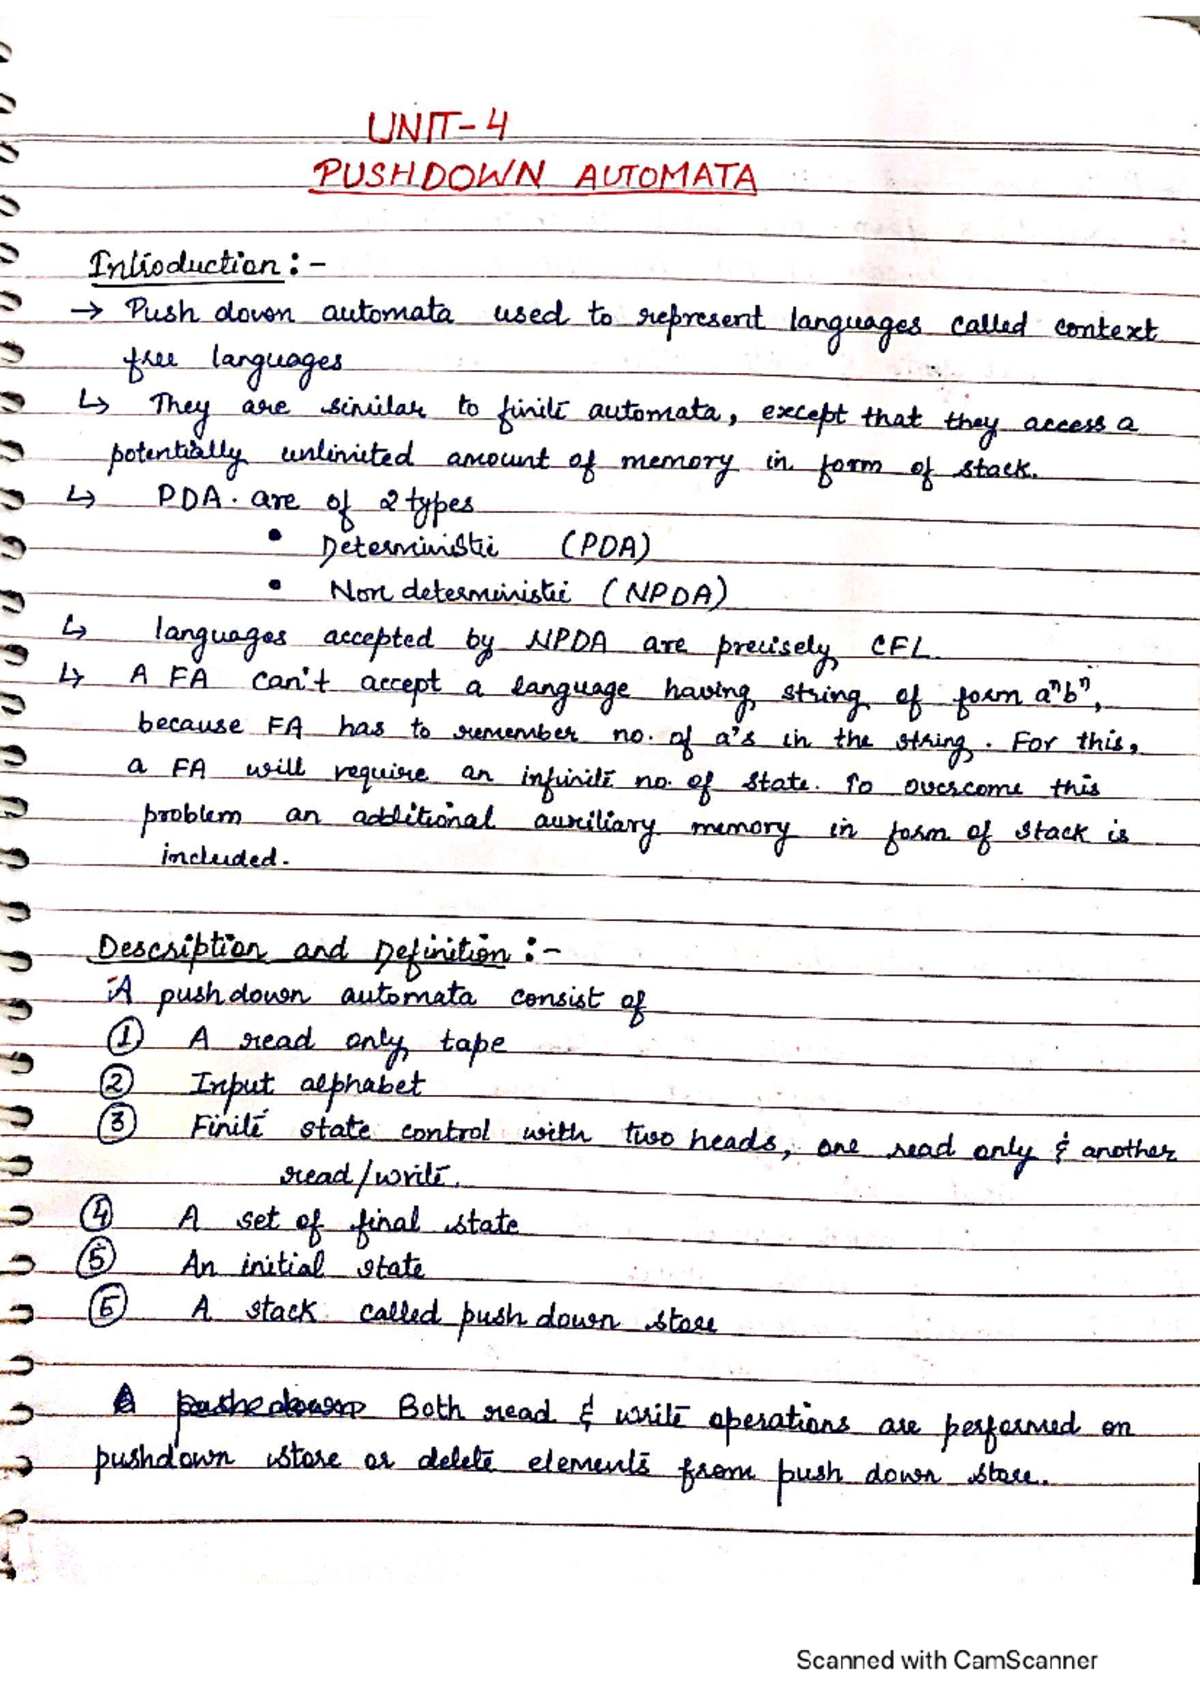 UNIT-4
PUSHDOWN AUTOMATA
Introduction :-
→ Push down automata used to represent languages called context
free languages
↳ They are similar to finite automata, except that they access a
potentially unlimited amount of memory in form of stack.
↳ PDA. are of 2 types
• Deterministic (PDA)
• Non deterministic (NPDA)
↳ languages accepted by NPDA are precisely CFL.
↳ A FA can't accept a language having string of form aⁿbⁿ,
because FA has to remember no. of a's in the string. For this,
a FA will require an infinite no. of state. To overcome this
problem an additional auxiliary memory in form of stack is
included.
Description and Definition :-
A pushdown automata consist of
① A read only tape
② Input alphabet
③ Finite state control with two heads, one read only & another
read/write.
④ A set of final state
⑤ An initial state
⑥ A stack called push down store
Both read & write operations are performed on
pushdown store or delete elements from push down store.
Scanned with CamScanner